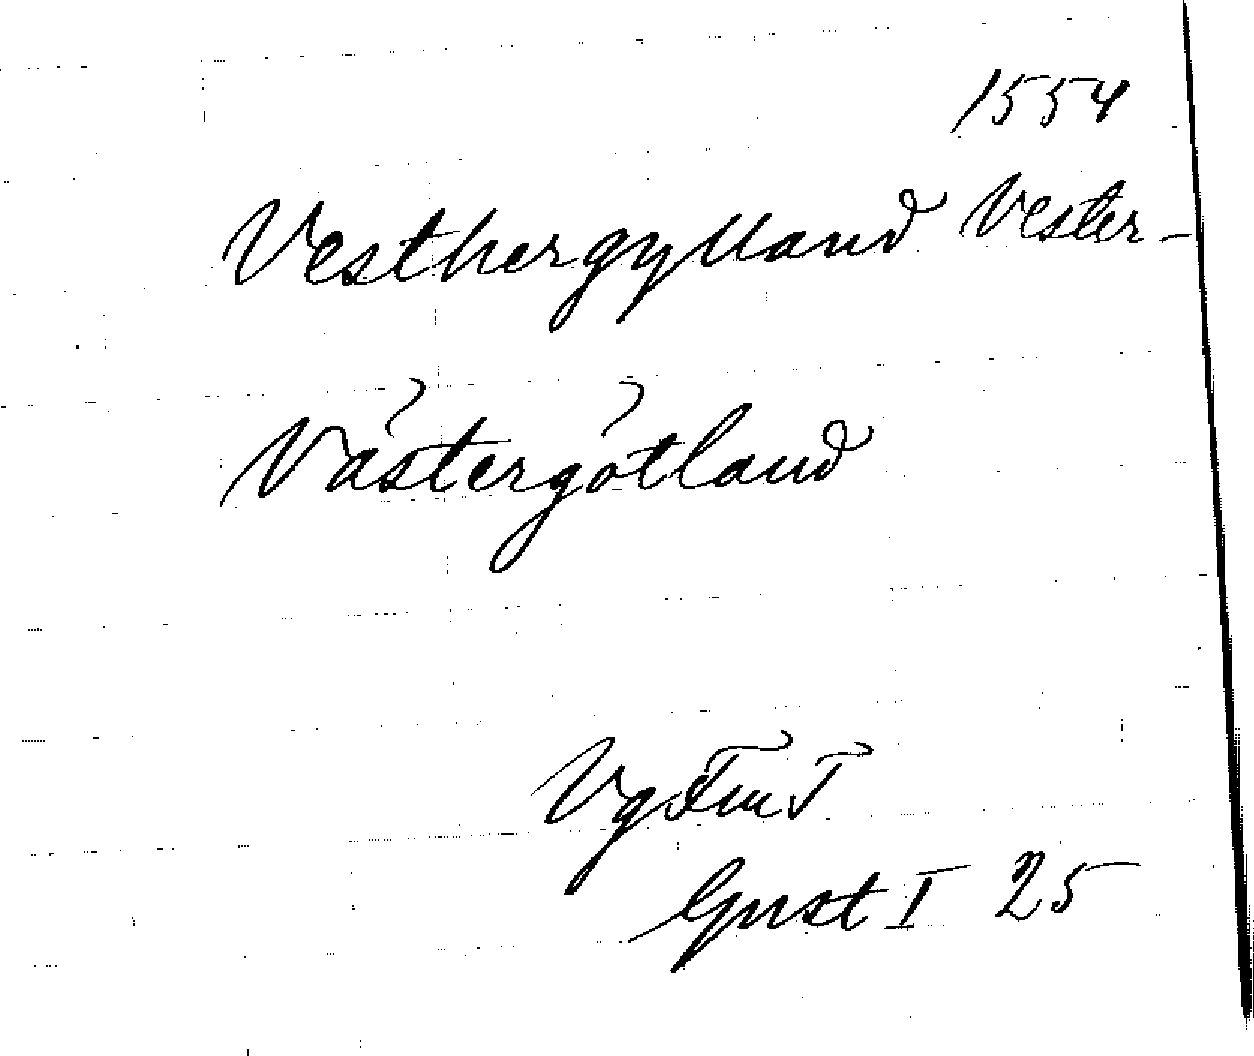 1554
Vesthergylland Vester-
Västergötland
VgFmT
Gust I 25